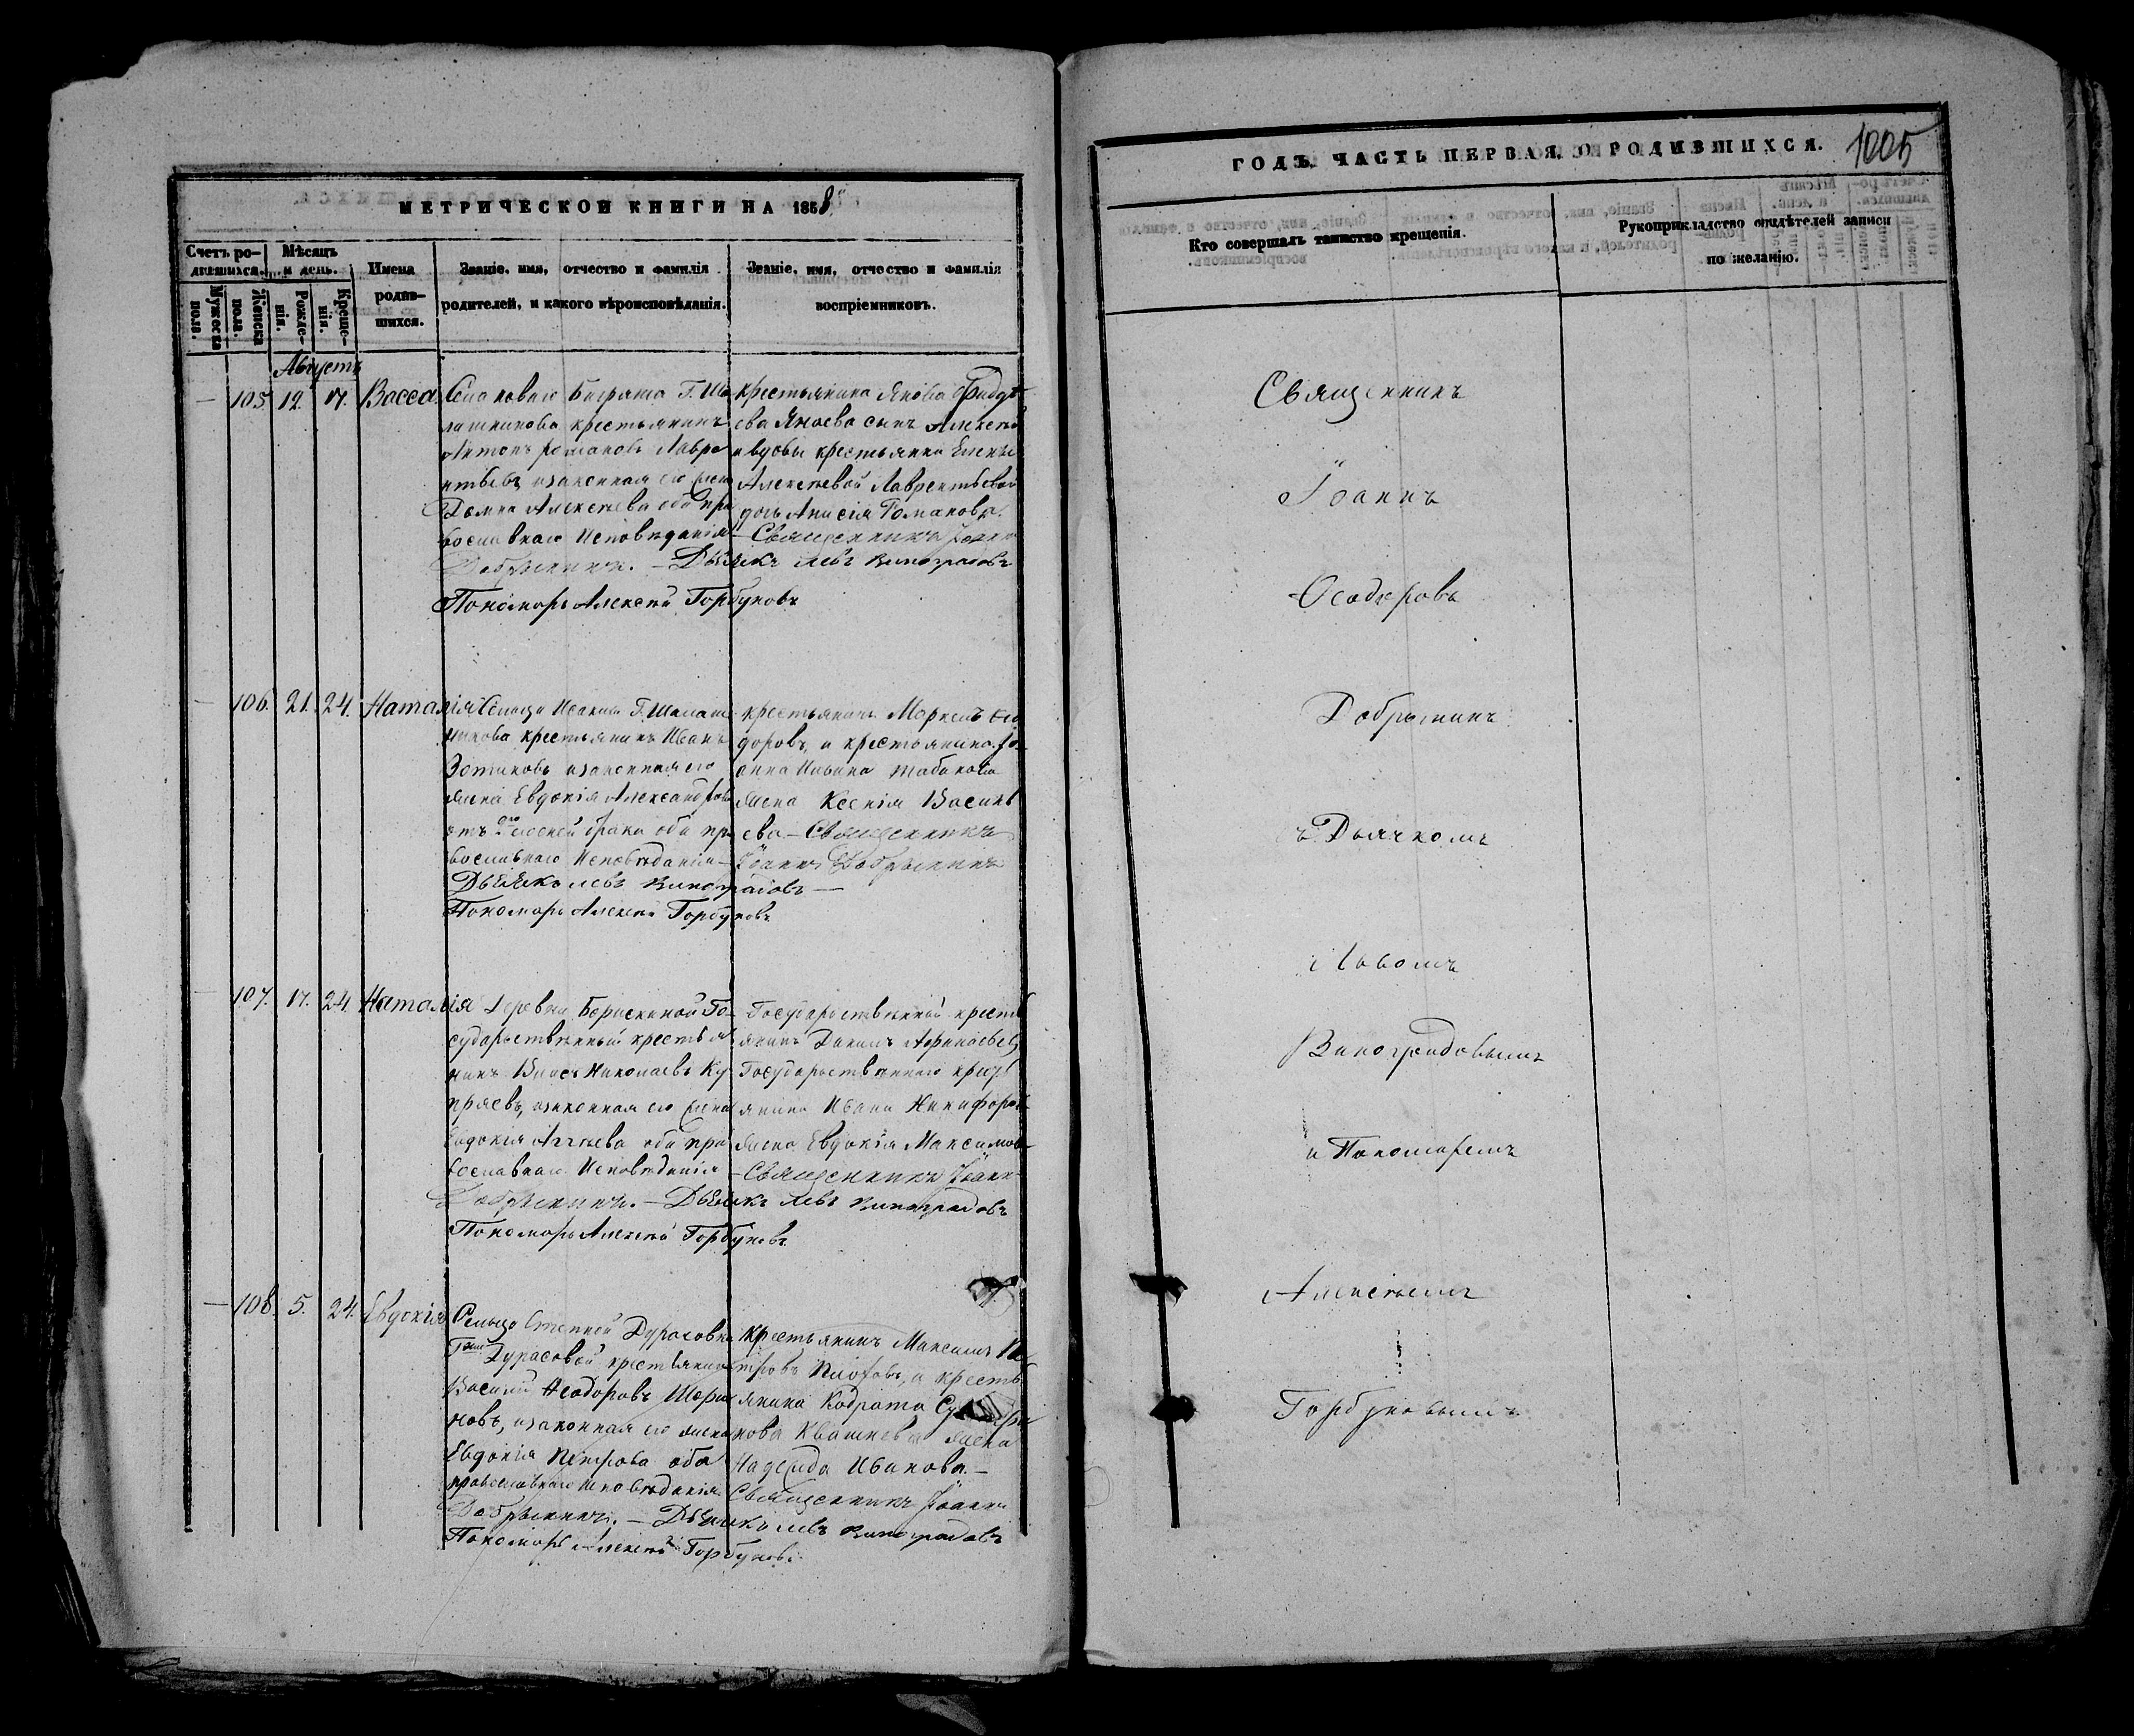 МЕТРИЧЕСКОЙ КНИГИ НА 1858
Счетъ ро-
дившихся.
Мѣсяцъ
и день.
Имена
родив-
шихся.
Званіе, имя, отчество и фамилія
родителей, и какого вѣроисповѣданія.
Званіе, имя, отчество и фамилія
воспріемниковъ.
Мужеска
пола.
Женска
пола.
Рожде-
нія.
Креще-
нія.
Августъ
105. 12. 17. Васса
крестьянинъ
Антонъ Романовъ Лавре
нтьевъ, и законная его жена
Домна Алексѣева оба пра
вославнаго Исповѣданія
крестьянина Якова
сынъ Алексѣй
и вдовы крестьянки Елены
Алексѣевой Лаврентьевой
дочь Анисія Романова.
— Священникъ Іоаннъ
Добрынинъ. — Дьячекъ Левъ Виноградовъ
Пономарь Алексѣй Горбуновъ
106. 21. 24. Наталія
крестьянинъ Иванъ
Зотиковъ и законная его
жена Евдокія Александрова
оба пра
вославнаго Исповѣданія —
крестьянинъ Маркелъ Ѳео
доровъ, и крестьянина Іо-
анна Ильина
жена Ксенія Василь
ева — Священникъ
Іоаннъ Добрынинъ
Дьячекъ Левъ Виноградовъ —
Пономарь Алексѣй Горбуновъ
107. 17. 24. Наталія
Деревни Борискиной Го-
сударственный крестья
нинъ Власъ Николаевъ Ку
пряевъ, и законная его жена
Евдокія Аггѣева оба пра
вославнаго Исповѣданія
Государственный кресть
янинъ Данилъ Афанасьевъ
Государственнаго кресть
янина Ивана Никифоров
жена Евдокія Максимов
— Священникъ Іоаннъ
Добрынинъ. — Дьячекъ Левъ Виноградовъ
Пономарь Алексѣй Горбуновъ
108. 5. 24. Евдокія
Сельца Степной Дурасовки
Г-жи Дурасовой крестьянинъ
Василій Ѳеодоровъ
новъ, и законная его жена
Евдокія Петрова оба
православнаго Исповѣданія
Крестьянинъ Максимъ Пе
тровъ и кресть
янина Кодрата
нова Квашнева жена
Надежда Иванова. —
Священникъ Іоаннъ
Добрынинъ. — Дьячекъ Левъ Виноградовъ
Пономарь Алексѣй Горбуновъ
ГОДЪ. ЧАСТЬ ПЕРВАЯ, О РОДИВШИХСЯ.
1005
Кто совершалъ таинство крещенія.
Рукоприкладство свидѣтелей записи
по желанію.
Священникъ
Іоаннъ
Ѳеодоровъ
Добрынинъ
съ Дьячкомъ
Львомъ
Виноградовымъ
и Пономаремъ
Алексѣемъ
Горбуновымъ